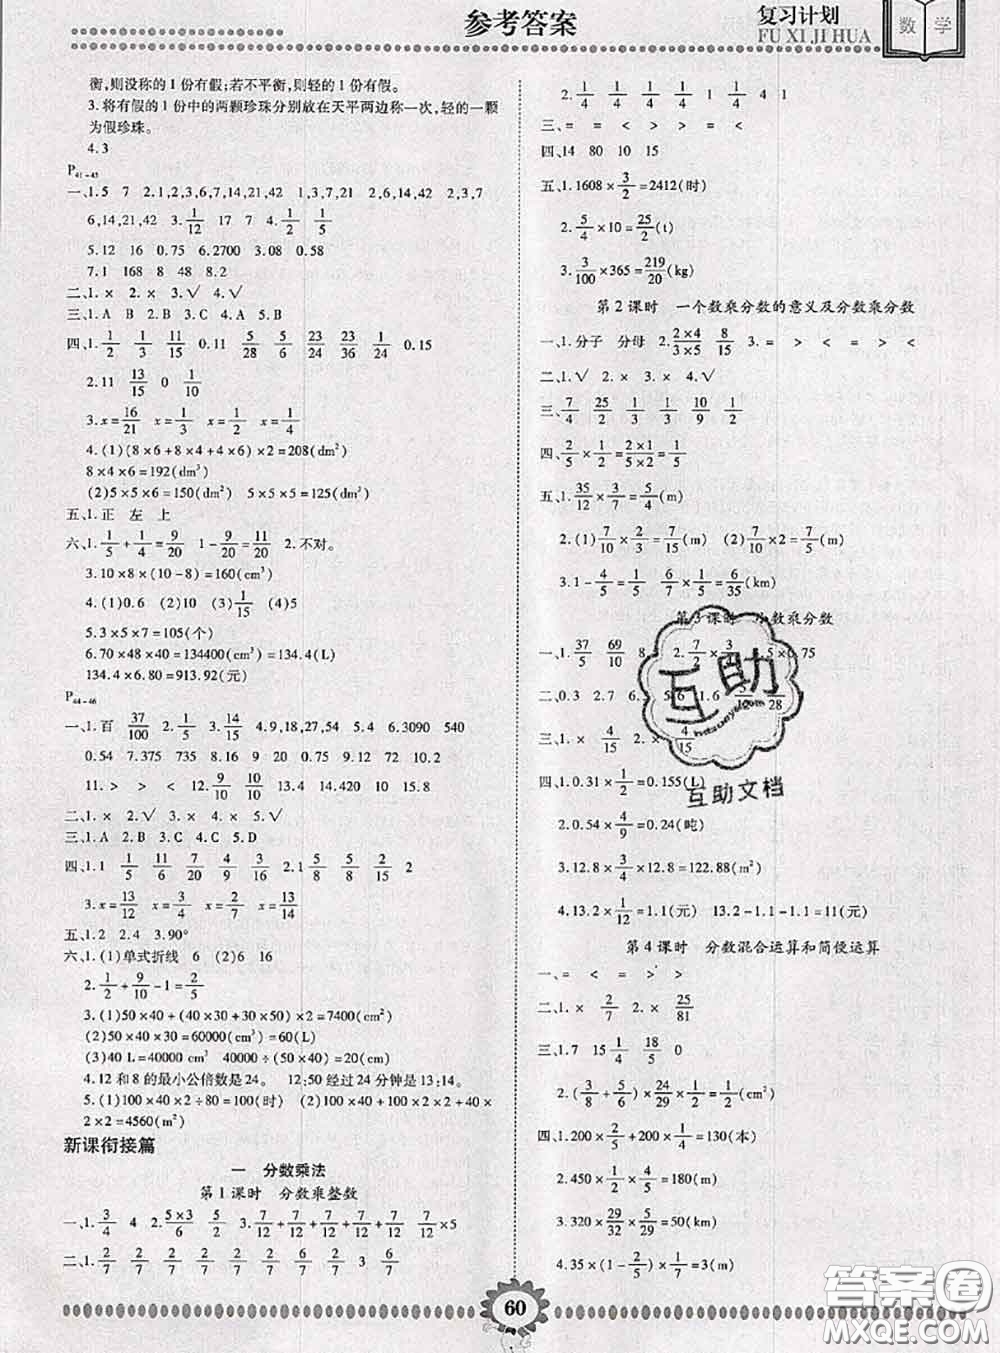 参考答案
复习计划
FU XI JI HUA
数 学
衡,则没称的1份有假;若不平衡,则轻的1份有假。
3.将有假的1份中的两颗珍珠分别放在天平两边称一次,轻的一颗
为假珍珠。
4.3
P41-43
一、1.5 7 2.1,2,3,6,7,14,21,42 1,3,7,21 2,6,14,42 2,3,7
6,14,21,42 3.1/12 17 7 4.1/2 1/5
5.12 16 0.75 6.2700 3.08 0.58
7.1 168 8 48 8.2
二、1.× 2.× 3.√ 4.√
三、1.A B 2.B 3.C 4.A 5.B
四、1.1/2 1/3 11/15 0.11 5/28 5/6 23/24 23/36 1/24 0.15
2.11 13/15 0 1/10
3.x=16/21 x=1/3 x=1/2 x=1/4
4.(1)(8×6+8×4+4×6)×2=208(dm²)
8×4×6=192(dm³)
(2)5×5×6=150(dm²) 5×5×5=125(dm³)
五、1.正 左 上
六、1.1/5+1/4=9/20 1-9/20=11/20 2.不对。
3.10×8×(10-8)=160(cm³)
4.(1)0.6 (2)10 (3)1/15 (4)5
5.3×5×7=105(个)
6.70×48×40=134400(cm³)=134.4(L)
134.4×6.80=913.92(元)
P44-46
一、1.百 37/100 2.1/5 3.3/15 4.9,18,27,54 5.4 6.3090 540
0.54 7.375 735 8.16 9.20 0.72 10.2
11.> > < 12.9/10 10/10 13.12 14.10 15.8
二、1.× 2.√ 3.× 4.× 5.√
三、1.A 2.B 3.C 4.C 5.D
四、1.1 1/5 11/6 7/20 4/9 3/4 2.1 5/8 5/8 4/15 2
3.x=13/12 x=3/4 x=2/7 x=13/14
五、1.2 2.4 3.90°
六、1.(1)单式折线 6 (2)6 16
2.1/2+9/10-1=2/5
3.(1)50×40+(40×30+30×50)×2=7400(cm²)
(2)50×40×30=60000(cm³)=60(L)
(3)40 L=40000cm³ 40000÷(50×40)=20(cm)
4.12和8的最小公倍数是24。 12:50经过24分钟是13:14。
5.(1)100×40×2÷80=100(时) (2)100×40+100×2×2+40×
2×2=4560(m²)
新课衔接篇
一 分数乘法
第1课时 分数乘整数
一、1.3/4 4 2.5×3/6 5/2 3.7/12+7/12+7/12+7/12+7/12 7/12×5
二、1.2/7 2/7 2/7 2/7 2/7 2/7 2/7 3 6/7
2.1/4 1/4 1/4 1/4 1 1/4 4 1
三、= = < > > = <
四、14 80 10 15
五、1.1608×3/2=2412(时)
2.5/4×10=25/2(t)
3.3/100×365=219/20(kg)
第2课时 一个数乘分数的意义及分数乘分数
一、1.分子 分母 2.2×4/3×5 8/15 3.= > < = > <
二、1.√ 2.× 3.× 4.√
三、7/4 25/2 1/3 1/3 10/9 1/2
四、2/5×1/2=2×1/5×2=1/5
五、1.35/12×3/7=5/4(m)
2.(1)7/10×2/3=7/15(m) (2)7/10×2=7/5(m)
3.1-4/5=1/5 6/7×1/5=6/35(km)
第3课时 小数乘分数
一、1.37/5 69/10 8 2.7/2×3 .5×0.75
二、0.3 2.7 6. 1.6 28
三、1.× 4/15 2.× 4/15
四、1.0.31×1/2=0.155(L)
2.0.54×4/9=0.24(吨)
3.12.8×3/4×12.8=122.88(m²)
4.13.2×1/12=1.1(元) 13.2-1.1-1.1=11(元)
第4课时 分数混合运算和简便运算
一、= < = > >
二、1.× 2/7 2.× 25/81
三、1.7 15 1/4 18/5 0
2.(3/8+5/6)×1/4×1/2=1/2(cm²)
四、1.200×2/5+200×1/4=130(本)
2.450×1/2×4/5=180(m)
3.320×29/32×5/29=50(km)
4.35×3/5×1/7=3(m)
互助
互助文档
60
答案圈
MXQE.COM